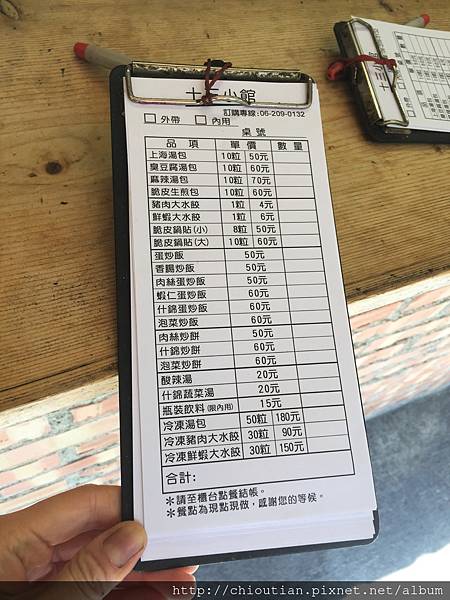 十三小館
訂購專線:06-209-0132
□ 外帶 □ 內用
桌號
品 項 單 價 數 量
上海湯包 10粒 50元
臭豆腐湯包 10粒 60元
麻辣湯包 10粒 70元
脆皮生煎包 10粒 60元
豬肉大水餃 1粒 4元
鮮蝦大水餃 1粒 6元
脆皮鍋貼(小) 8粒 50元
脆皮鍋貼(大) 10粒 60元
蛋炒飯 50元
香腸炒飯 50元
肉絲蛋炒飯 50元
蝦仁蛋炒飯 60元
什錦蛋炒飯 60元
泡菜炒飯 60元
肉絲炒餅 50元
什錦炒餅 60元
泡菜炒餅 60元
酸辣湯 20元
什錦蔬菜湯 20元
瓶裝飲料(限內用) 15元
冷凍湯包 50粒 180元
冷凍豬肉大水餃 30粒 90元
冷凍鮮蝦大水餃 30粒 150元
合計:
＊請至櫃台點餐結帳。
＊餐點為現點現做，感謝您的等候。
十三小
http://chioutian.pixnet.net/album